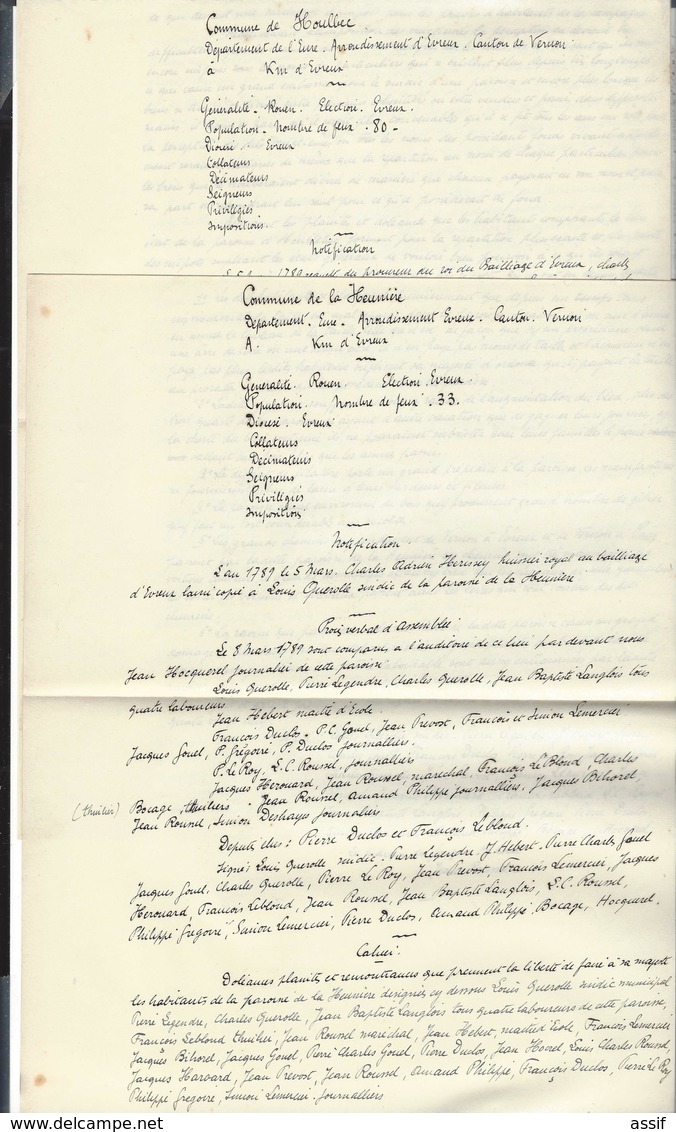 Commune de Houlbec.
Département de l'Eure. Arrondissement d'Evreux. Canton de Vernon
à Km d'Evreux
Généralité. Rouen. Election. Evreux.
Population. Nombre de feux. 80_
Diocèse. Evreux
Collateurs
Décimateurs
Seigneurs
Privilégiés
Impositions.
Notification
1789 requête du procureur du roi du Bailliage d'Evreux,
Commune de la Heunière
Département. Eure. Arrondissement Evreux. Canton. Vernon
A. Km d'Evreux
Généralité. Rouen. Election. Evreux.
Population. Nombre de feux. 33.
Diocèse. Evreux
Collateurs
Décimateurs
Seigneurs
Privilégiés
Impositions
Notification.
L'an 1789 le 5 Mars. Charles Adrien Herissey huissier royal au bailliage
d'Evreux laissé copie à Louis Querolle sindic de la paroisse de la Heunière
Procès verbal d'Assemblée.
Le 8 Mars 1789 sont comparus à l'auditoire de ce lieu par devant nous
Jean Hocquerel journalier de cette paroisse
Louis Querolle, Pierre Legendre, Charles Querolle, Jean Baptiste Langlois tous
quatre laboureurs.
Jean Hebert maître d'Ecole.
François Duclos. P.C. Gouel, Jean Prevost, François et Simon Lemercier
Jacques Gouel, P. Grégoire, P. Duclos journalliers.
P. Le Roy, L.C. Roussel, journalliers
Jacques Herouard, Jean Roussel, marechal, François Le Blond, Charles
(thuilier) Bocage, thuiliers. Jean Roussel, Amand Philippe journalliers, Jacques Bihorel,
Jean Roussel, Simon Deshayes journaliers
Députés élus: Pierre Duclos et François Leblond.
Signés Louis Querolle sindic. Pierre Legendre. J. Hebert. Pierre Charles Gouel
Jacques Gouel, Charles Querolle, Pierre Le Roy, Jean Prevost, François Lemercier, Jacques
Herouard, François Leblond, Jean Roussel, Jean Baptiste Langlois, L.C. Roussel,
Philippe Gregoire, Simon Lemercier, Pierre Duclos, Amand Philippe Bocage, Hocquerel.
Cahier.
Doléances plaintes et remontrances que prennent la liberté de faire à sa majesté
les habitants de la paroisse de la Heunière designés cy dessous Louis Querolle sindic municipal
Pierre Legendre, Charles Querolle, Jean Baptiste Langlois tous quatre laboureurs de cette paroisse,
François Leblond thuilier, Jean Roussel maréchal, Jean Hebert, maitre d'Ecole, François Lemercier
Jacques Bihorel, Jacques Gouel, Pierre Charles Gouel, Pierre Duclos, Jean Louis Charles Roussel,
Jacques Harvard, Jean Prevost, Jean Roussel, Amand Philippe, François Duclos, Pierre Le Roy
Philippe Gregoire, Simon Lemercier. journalliers
assif